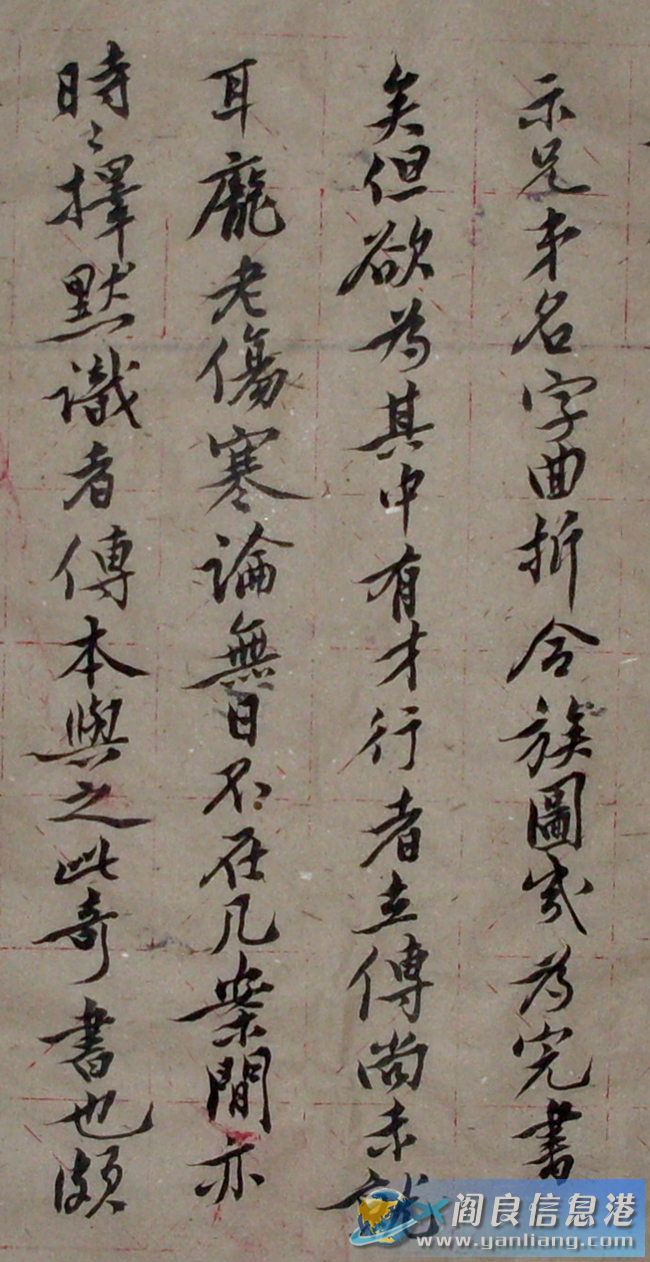 示兄弟名字曲折合族圖幾為完書
矣但欲為其中有才行者立傳尚未就
耳龐老傷寒論無日不在几案間亦
時時擇默識者傳本與之此奇書也頗
阎良信息港
www.yanliang.com